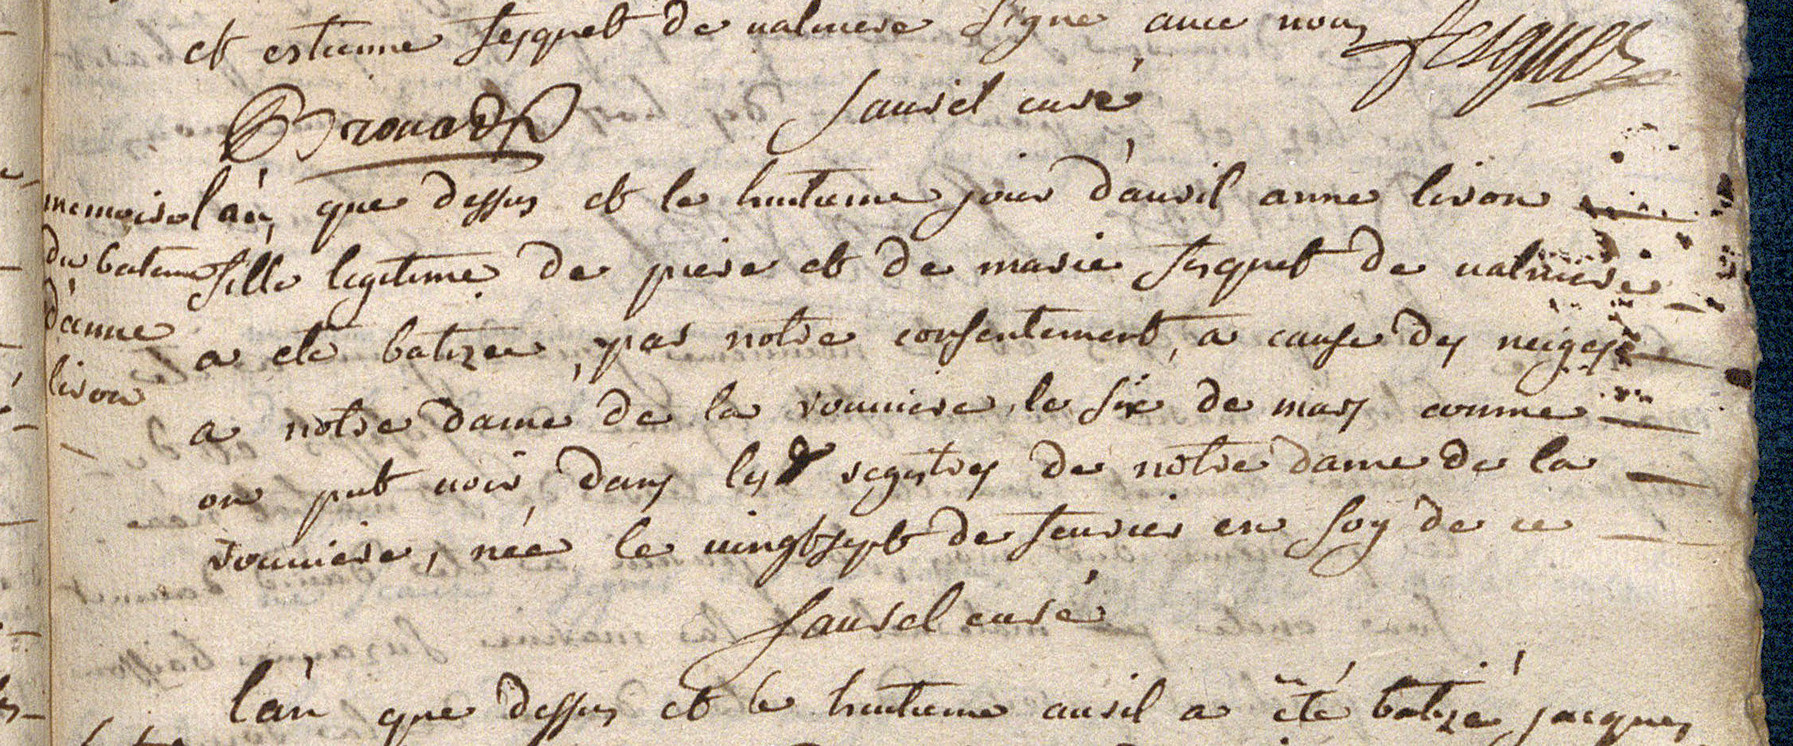 et estienne fesquet de valmere signe avec nous fesquet
Brouard
sausel curé
memoire
du bateme
d'anne
liron
l'an que dessus et le huitieme jour d'avril anne liron
fille legitime de piere et de marie fesquet de valmere
a ete batizée, par notre consentement, a cause des neiges
a notre dame de la rouviere, le six de mars comme
on put voir dans les registres de notre dame de la
rouviere, née le vingtsept de fevrier en foy de ce
sausel curé
l'an que dessus et le huitieme avril a été batizé jacques